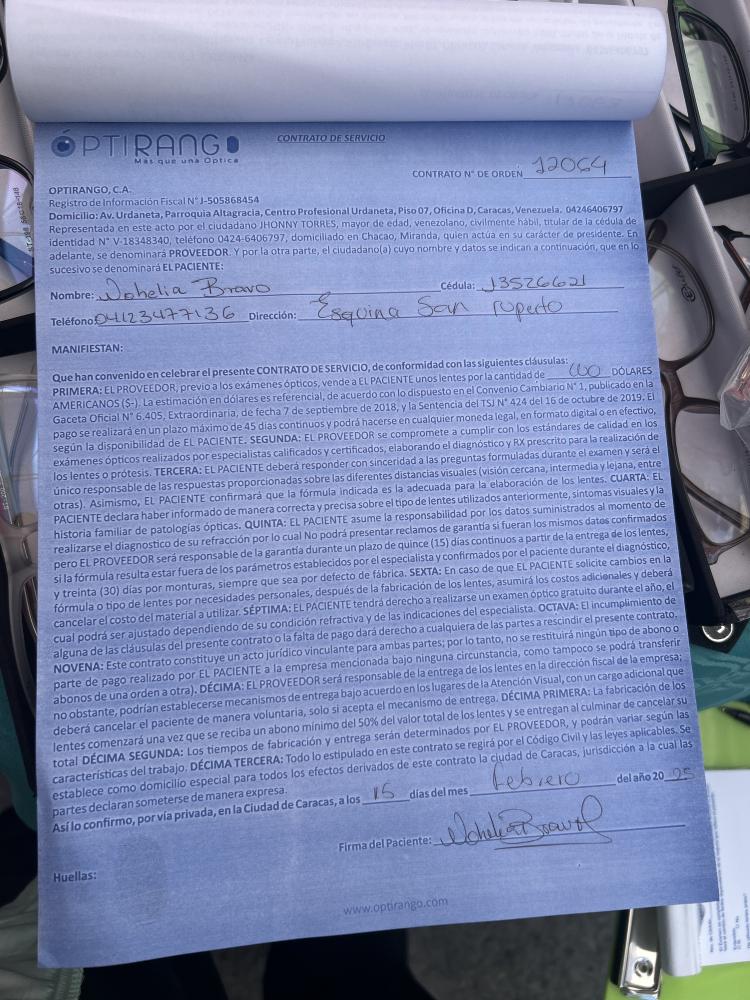 ÓPTIRANGO
Más que una Óptica
CONTRATO DE SERVICIO
CONTRATO N° DE ORDEN 12064
OPTIRANGO, C.A.
Registro de Información Fiscal N° J-505868454
Domicilio: Av. Urdaneta, Parroquia Altagracia, Centro Profesional Urdaneta, Piso 07, Oficina D, Caracas, Venezuela. 04246406797
Representada en este acto por el ciudadano JHONNY TORRES, mayor de edad, venezolano, civilmente hábil, titular de la cédula de
identidad N° V-18348340, teléfono 0424-6406797, domiciliado en Chacao, Miranda, quien actúa en su carácter de presidente. En
adelante, se denominará PROVEEDOR. Y por la otra parte, el ciudadano(a) cuyo nombre y datos se indican a continuación, que en lo
sucesivo se denominará EL PACIENTE:
Nombre: Nohelia Bravo Cédula: 13526621
Teléfono: 04123477136 Dirección: Esquina San ruperto
MANIFIESTAN:
Que han convenido en celebrar el presente CONTRATO DE SERVICIO, de conformidad con las siguientes cláusulas:
PRIMERA: EL PROVEEDOR, previo a los exámenes ópticos, vende a EL PACIENTE unos lentes por la cantidad de DÓLARES
AMERICANOS (S-). La estimación en dólares es referencial, de acuerdo con lo dispuesto en el Convenio Cambiario N° 1, publicado en la
Gaceta Oficial N° 6.405, Extraordinaria, de fecha 7 de septiembre de 2018, y la Sentencia del TSJ N° 424 del 16 de octubre de 2019. El
pago se realizará en un plazo máximo de 45 días continuos y podrá hacerse en cualquier moneda legal, en formato digital o en efectivo,
según la disponibilidad de EL PACIENTE. SEGUNDA: EL PROVEEDOR se compromete a cumplir con los estándares de calidad en los
exámenes ópticos realizados por especialistas calificados y certificados, elaborando el diagnóstico y RX prescrito para la realización de
los lentes o prótesis. TERCERA: EL PACIENTE deberá responder con sinceridad a las preguntas formuladas durante el examen y será el
único responsable de las respuestas proporcionadas sobre las diferentes distancias visuales (visión cercana, intermedia y lejana, entre
otras). Asimismo, EL PACIENTE confirmará que la fórmula indicada es la adecuada para la elaboración de los lentes. CUARTA: EL
PACIENTE declara haber informado de manera correcta y precisa sobre el tipo de lentes utilizados anteriormente, síntomas visuales y la
historia familiar de patologías ópticas. QUINTA: EL PACIENTE asume la responsabilidad por los datos suministrados al momento de
realizarse el diagnostico de su refracción por lo cual No podrá presentar reclamos de garantía si fueran los mismos datos confirmados
pero EL PROVEEDOR será responsable de la garantía durante un plazo de quince (15) días continuos a partir de la entrega de los lentes,
si la fórmula resulta estar fuera de los parámetros establecidos por el especialista y confirmados por el paciente durante el diagnóstico,
y treinta (30) días por monturas, siempre que sea por defecto de fábrica. SEXTA: En caso de que EL PACIENTE solicite cambios en la
fórmula o tipo de lentes por necesidades personales, después de la fabricación de los lentes, asumirá los costos adicionales y deberá
cancelar el costo del material a utilizar. SÉPTIMA: EL PACIENTE tendrá derecho a realizarse un examen óptico gratuito durante el año, el
cual podrá ser ajustado dependiendo de su condición refractiva y de las indicaciones del especialista. OCTAVA: El incumplimiento de
alguna de las cláusulas del presente contrato o la falta de pago dará derecho a cualquiera de las partes a rescindir el presente contrato.
NOVENA: Este contrato constituye un acto jurídico vinculante para ambas partes; por lo tanto, no se restituirá ningún tipo de abono o
parte de pago realizado por EL PACIENTE a la empresa mencionada bajo ninguna circunstancia, como tampoco se podrá transferir
abonos de una orden a otra). DÉCIMA: EL PROVEEDOR será responsable de la entrega de los lentes en la dirección fiscal de la empresa;
no obstante, podrían establecerse mecanismos de entrega bajo acuerdo en los lugares de la Atención Visual, con un cargo adicional que
deberá cancelar el paciente de manera voluntaria, solo si acepta el mecanismo de entrega. DÉCIMA PRIMERA: La fabricación de los
lentes comenzará una vez que se reciba un abono mínimo del 50% del valor total de los lentes y se entregan al culminar de cancelar su
total DÉCIMA SEGUNDA: Los tiempos de fabricación y entrega serán determinados por EL PROVEEDOR, y podrán variar según las
características del trabajo. DÉCIMA TERCERA: Todo lo estipulado en este contrato se regirá por el Código Civil y las leyes aplicables. Se
establece como domicilio especial para todos los efectos derivados de este contrato la ciudad de Caracas, jurisdicción a la cual las
partes declaran someterse de manera expresa.
Así lo confirmo, por vía privada, en la Ciudad de Caracas, a los 15 días del mes febrero del año 20 25
Firma del Paciente: Nohelia Bravo
Huellas:
www.optirango.com